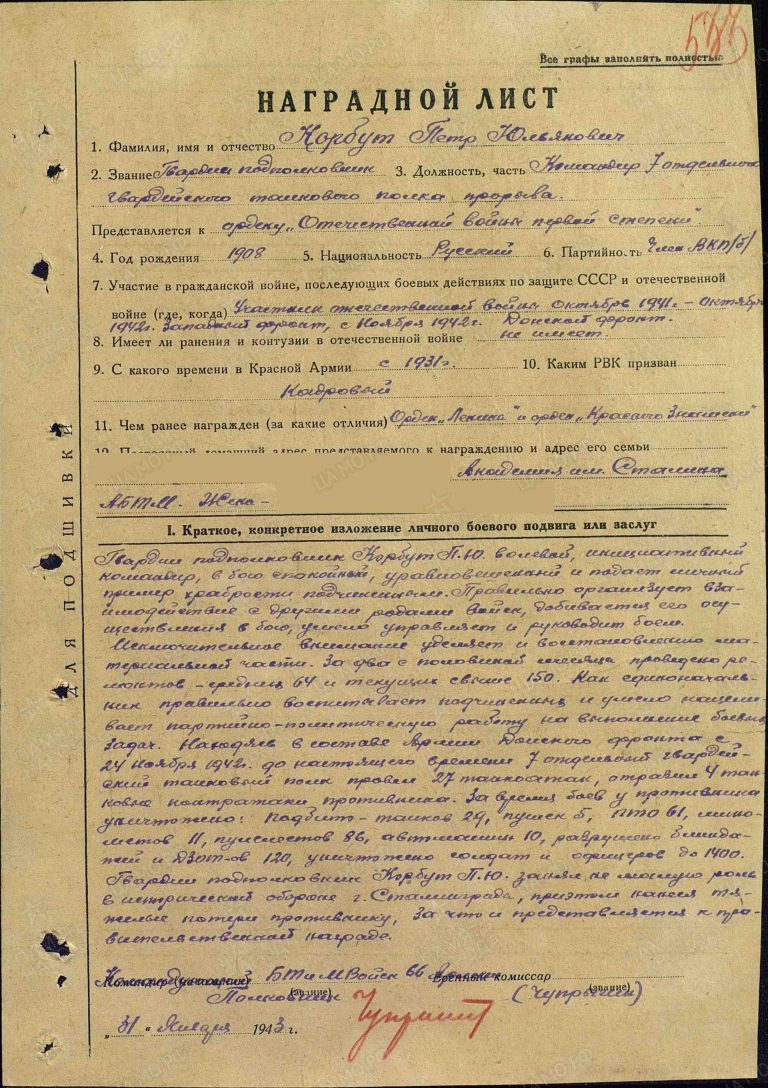 533
Все графы заполнять полностью
НАГРАДНОЙ ЛИСТ
1. Фамилия, имя и отчество Корбут Петр Юльянович
2. Звание Гвардии подполковник 3. Должность, часть Командир 7 отдельного
гвардейского танкового полка прорыва.
Представляется к ордену „Отечественной войны первой степени"
4. Год рождения 1908 5. Национальность Русский 6. Партийность Член ВКП/б/
7. Участие в гражданской войне, последующих боевых действиях по защите СССР и отечественной
войне (где, когда) Участник отечественной войны октябрь 1941г. – октябрь
1942г. Западный фронт, с ноября 1942г. Донской фронт.
8. Имеет ли ранения и контузии в отечественной войне не имеет.
9. С какого времени в Красной Армии с 1931г. 10. Каким РВК призван
Кадровый
11. Чем ранее награжден (за какие отличия) Орден „Ленина" и орден „Красного Знамени"
12. Постоянный домашний адрес представляемого к награждению и адрес его семьи
Академия им. Сталина
АБТМ. Жена –
I. Краткое, конкретное изложение личного боевого подвига или заслуг
Гвардии подполковник Корбут П.Ю. волевой, инициативный
командир, в бою спокойный, уравновешенный и подает личный
пример храбрости подчиненным. Правильно организует вза-
имодействие с другими родами войск, добивается его осу-
ществления в бою, умело управляет и руководит боем.
Исключительное внимание уделяет и восстановлению ма-
териальной части. За два с половиной месяца проведено ре-
монтов – средних 64 и текущих свыше 150. Как единоначаль-
ник правильно воспитывает подчиненных и умело нацели-
вает партийно-политическую работу на выполнение боевых
задач. Находясь в составе Армии Донского фронта с
24 ноября 1942г. до настоящего времени 7 отдельный гвардей-
ский танковый полк провел 27 танкоатак, отразил 4 тан-
ковые контратаки противника. За время боев у противника
уничтожено: подбито – танков 29, пушек 5, ПТО 61, мино-
метов 11, пулеметов 86, автомашин 10, разрушено блинда-
жей и ДЗОТ-ов 120, уничтожено солдат и офицеров до 1400.
Гвардии подполковник Корбут П.Ю. занял не малую роль
в исторической обороне г. Сталинграда, притом нанеся тя-
желые потери противнику, за что и представляется к пра-
вительственной награде.
Командующий БТ и М Войск 66 Армии Военный комиссар
Полковник (звание) (Чупрынин) (звание)
„31" Января 1943 г.
ДЛЯ ПОДШИВКИ